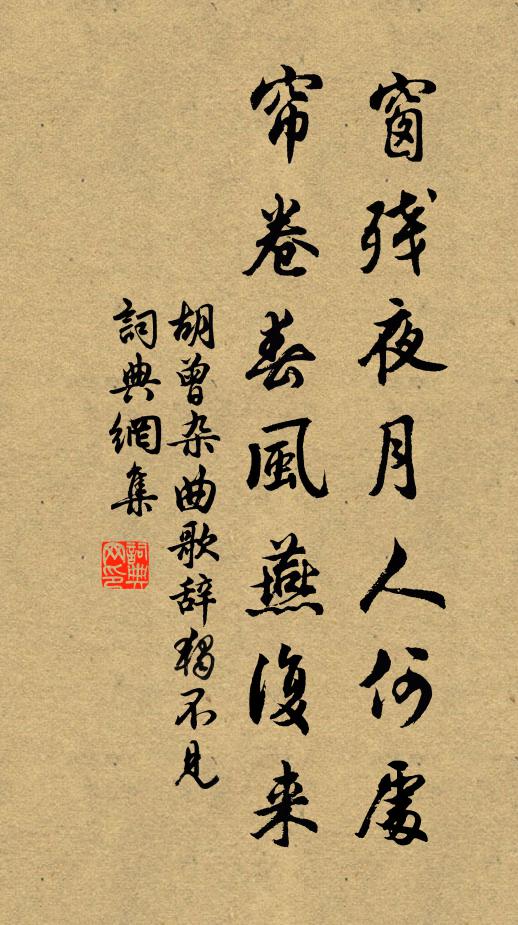 窗残夜月人何處
帘卷春風燕復来
胡曾杂曲歌辞獨不見
詞典網集
詞典网印